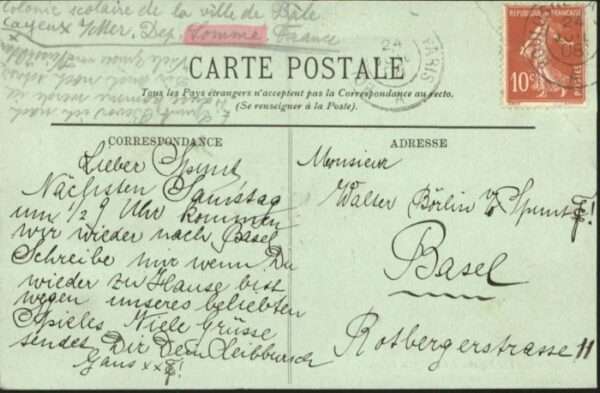 Colonie scolaire de la ville de Bâle
Cayeux s/Mer. Dep. Somme, France
RÉPUBLIQUE FRANÇAISE
10c
POSTES
PARIS
24
CARTE POSTALE
Tous les Pays étrangers n'acceptent pas la Correspondance au recto.
(Se renseigner à la Poste).
CORRESPONDANCE
Lieber Spunt
Nächsten Samstag
um 1/2 9 Uhr kommen
wir wieder nach Basel
Schreibe mir wenn Du
wieder zu Hause bist
wegen unseres beliebten
Spieles. Viele Grüsse
sendet Dir Dein Leibbursch
Gans
ADRESSE
Monsieur
Walter Börlin Spunt
Basel
Rotbergerstrasse 11